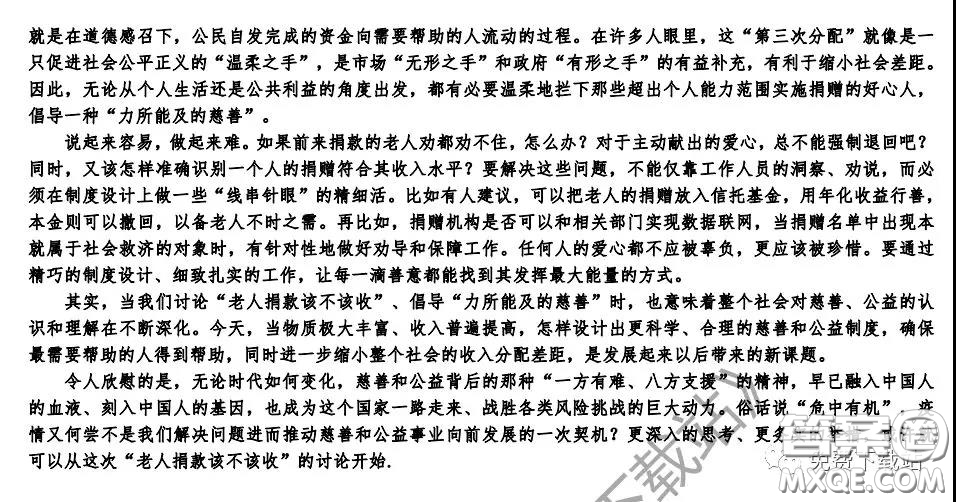 就是在道德感召下，公民自发完成的资金向需要帮助的人流动的过程。在许多人眼里，这“第三次分配”就像是一
只促进社会公平正义的“温柔之手”，是市场“无形之手”和政府“有形之手”的有益补充，有利于缩小社会差距。
因此，无论从个人生活还是公共利益的角度出发，都有必要温柔地拦下那些超出个人能力范围实施捐赠的好心人，
倡导一种“力所能及的慈善”。
说起来容易，做起来难。如果前来捐款的老人劝都劝不住，怎么办？对于主动献出的爱心，总不能强制退回吧？
同时，又该怎样准确识别一个人的捐赠符合其收入水平？要解决这些问题，不能仅靠工作人员的洞察、劝说，而必
须在制度设计上做一些“线串针眼”的精细活。比如有人建议，可以把老人的捐赠放入信托基金，用年化收益行善，
本金则可以撤回，以备老人不时之需。再比如，捐赠机构是否可以和相关部门实现数据联网，当捐赠名单中出现本
就属于社会救济的对象时，有针对性地做好劝导和保障工作。任何人的爱心都不应被辜负，更应该被珍惜。要通过
精巧的制度设计、细致扎实的工作，让每一滴善意都能找到其发挥最大能量的方式。
其实，当我们讨论“老人捐款该不该收”、倡导“力所能及的慈善”时，也意味着整个社会对慈善、公益的认
识和理解在不断深化。今天，当物质极大丰富、收入普遍提高，怎样设计出更科学、合理的慈善和公益制度，确保
最需要帮助的人得到帮助，同时进一步缩小整个社会的收入分配差距，是发展起来以后带来的新课题。
令人欣慰的是，无论时代如何变化，慈善和公益背后的那种“一方有难、八方支援”的精神，早已融入中国人
的血液、刻入中国人的基因，也成为这个国家一路走来、战胜各类风险挑战的巨大动力。俗话说“危中有机”，疫
情又何尝不是我们解决问题进而推动慈善和公益事业向前发展的一次契机？更深入的思考、更多
可以从这次“老人捐款该不该收”的讨论开始.
下载站》
答案圈
免费下载站
MXQE.COM